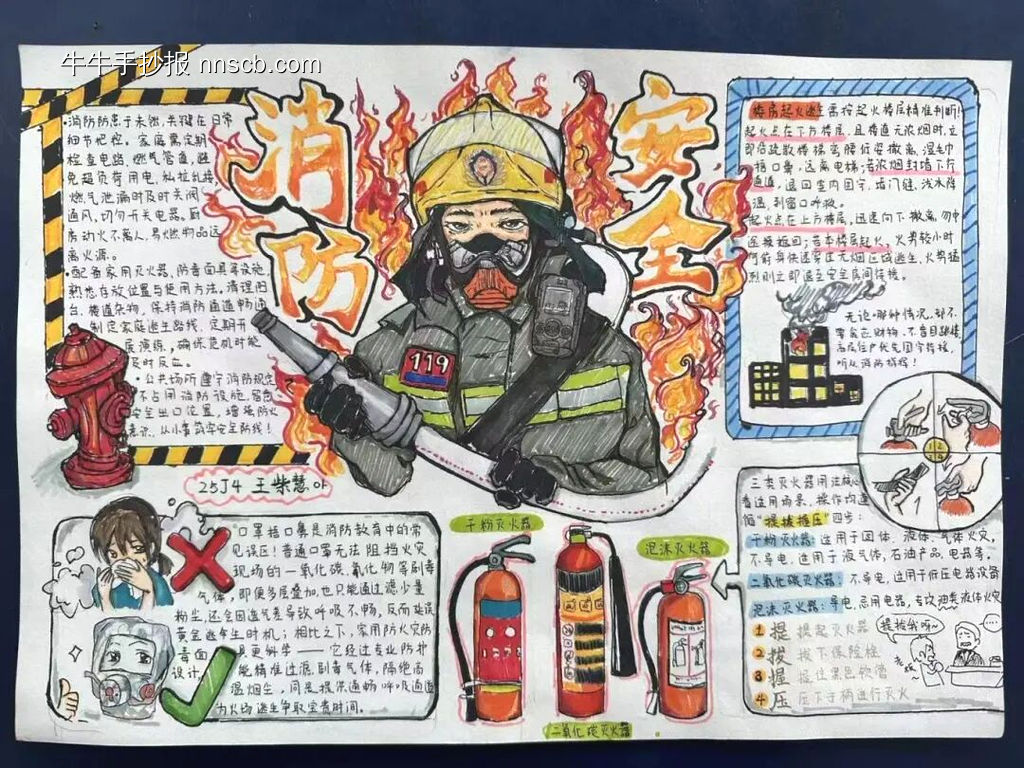 牛牛手抄报 nnscb.com
消防
安全
119
·消防防患于未然,关键在日常
细节把控。家庭需定期
检查电路、燃气管道,避
免超负荷用电、私拉乱接,
燃气泄漏时及时关阀
通风,切勿开关电器。厨
房动火不离人,易燃物品远
离火源。
·配备家用灭火器、防毒面具等设施,
熟悉存放位置与使用方法。清理阳
台、楼道杂物,保持消防通道畅通
制定家庭逃生路线,定期开
展演练,确保危机时能
及时反应。
·公共场所遵守消防规定
不占用消防设施,留意
安全出口位置,增强防火
意识,从小事筑牢安全防线!
25J4 王柴慧
楼房起火逃生需按起火楼层精准判断!
起火点在下方楼层,且楼道无浓烟时,立
即沿疏散楼梯弯腰低姿撤离,湿毛巾
捂口鼻,远离电梯;若浓烟封堵下行
通道,退回室内固守,堵门缝,浇水降
温,到窗口呼救。
起火点在上方楼层,迅速向下撤离,勿中
途返回;若本楼层起火,火势较小时
火势猛
烈则立即退至安全房间待援。
无论哪种情况,都不
要贪恋财物、不盲目跳楼
高层住户优先固守待援,
听从消防指挥!
口罩捂口鼻是消防教育中的常
见误区!普通口罩无法阻挡火灾
现场的一氧化碳、氰化物等剧毒
气体,即便多层叠加,也只能通过滤少量
粉尘,还会因透气差导致呼吸不畅,反而延误
黄金逃生时机;相比之下,家用防火灾防
毒面具更科学——它经过专业防护
设计,能精准过滤剧毒气体,隔绝高
温烟尘,同是提供通畅呼吸通道
为火场逃生争取宝贵时间。
干粉灭火器
泡沫灭火器
二氧化碳灭火器
1 2
3 4
三类灭火器用法核心
看适用场景,操作均遵
循"提拔握压"四步:
干粉灭火器:适用于固体、液体、气体火灾,
不导电,适用于液气体、石油产品、电器等。
二氧化碳灭火器:不导电,适用于低压电器设备
泡沫灭火器:导电,忌用电器,专攻油类液体火灾
1 提 提起灭火器
2 拔 拔下保险栓
3 握 握住黑色软管
4 压 压下手柄进行灭火
提拔我呀~